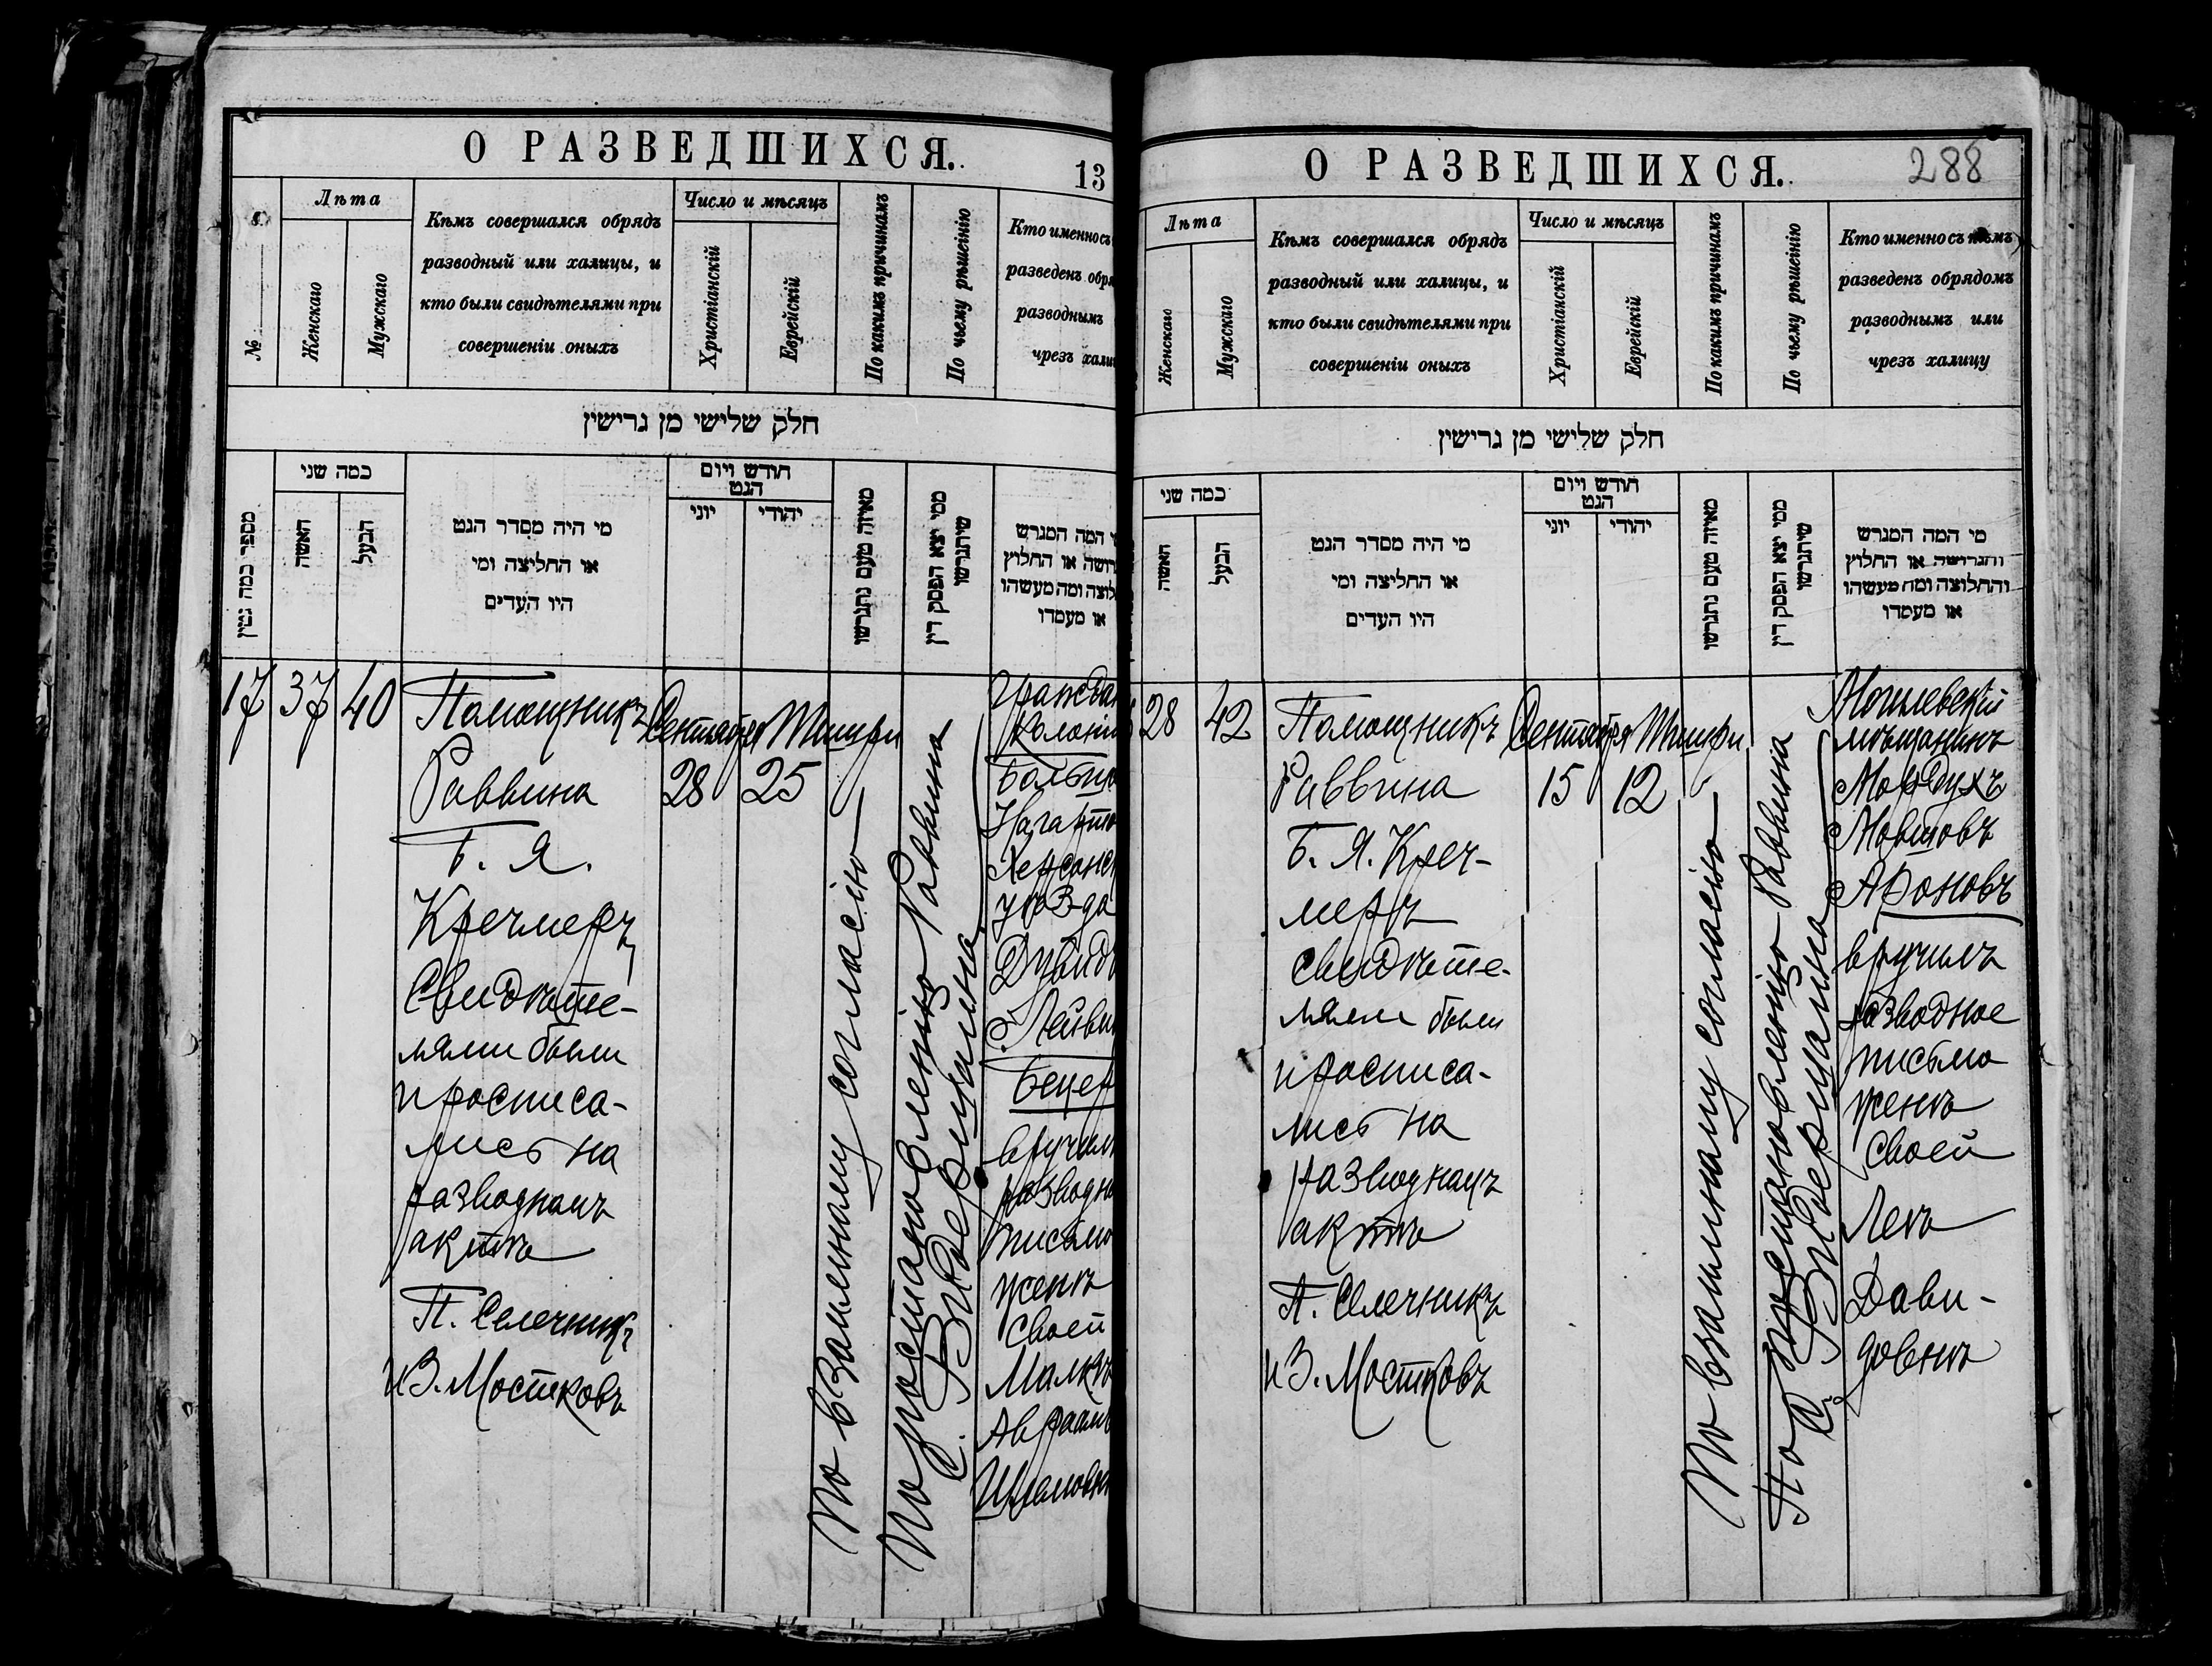 О РАЗВЕДШИХСЯ.
13
№
Лѣта
Женскаго
Мужскаго
Кѣмъ совершался обрядъ
разводный или халицы, и
кто были свидѣтелями при
совершеніи оныхъ
Число и мѣсяцъ
Христіанскій
Еврейскій
По какимъ причинамъ
По чьему рѣшенію
Кто именно съ
разведенъ обря
разводнымъ
чрезъ хали
חלק שלישי מן גרישין
מספר כמה גיטין
כמה שני
האשה
הבעל
מי היה מסדר הגט
או החליצה ומי
היו העדים
חודש ויום
הגט
יוני
יהודי
מאיזה טעם נתגרשו
ממי יצא הפסק דין
שיתגרשו
י המה המגרש
רושה או החלוץ
לוצה ומה מעשהו
או מעמדו
17
37
40
Помощникъ
Раввина
Б. Я.
Кречмеръ
Свидѣте-
лями были
и росписа-
лись на
разводномъ
актѣ
П. Селечникъ
и З. Мостковъ
Сентября
28
Тишри
25
По взаимному согласію
По постановленію Раввина
С. Видерштина
Граждан
Колоніи
Больш
Нагарто
Херсонск
уѣзда
Дувидъ
Лейви
Бецер
вручилъ
разводно
письмо
женѣ
своей
Малкѣ
Авраамъ
Шлемовн
О РАЗВЕДШИХСЯ.
288
Лѣта
Женскаго
Мужскаго
Кѣмъ совершался обрядъ
разводный или халицы, и
кто были свидѣтелями при
совершеніи оныхъ
Число и мѣсяцъ
Христіанскій
Еврейскій
По какимъ причинамъ
По чьему рѣшенію
Кто именно съ кѣмъ
разведенъ обрядомъ
разводнымъ или
чрезъ халицу
חלק שלישי מן גרישין
כמה שני
האשה
הבעל
מי היה מסדר הגט
או החליצה ומי
היו העדים
חודש ויום
הגט
יוני
יהודי
מאיזה טעם נתגרשו
ממי יצא הפסק דין
שיתגרשו
מי המה המגרש
והגרושה או החלוץ
והחלוצה ומה מעשהו
או מעמדו
28
42
Помощникъ
Раввина
Б. Я. Креч-
меръ
Свидѣте-
лями были
и росписа-
лись на
разводномъ
актѣ
П. Селечникъ
и З. Мостковъ
Сентября
15
Тишри
12
По взаимному согласію
По постановленію Раввина
С. Видерштина
Могилевскій
мѣщанинъ
Мордухъ
Мовшовъ
Ароновъ
вручилъ
разводное
письмо
женѣ
своей
Леѣ
Дави-
довнѣ